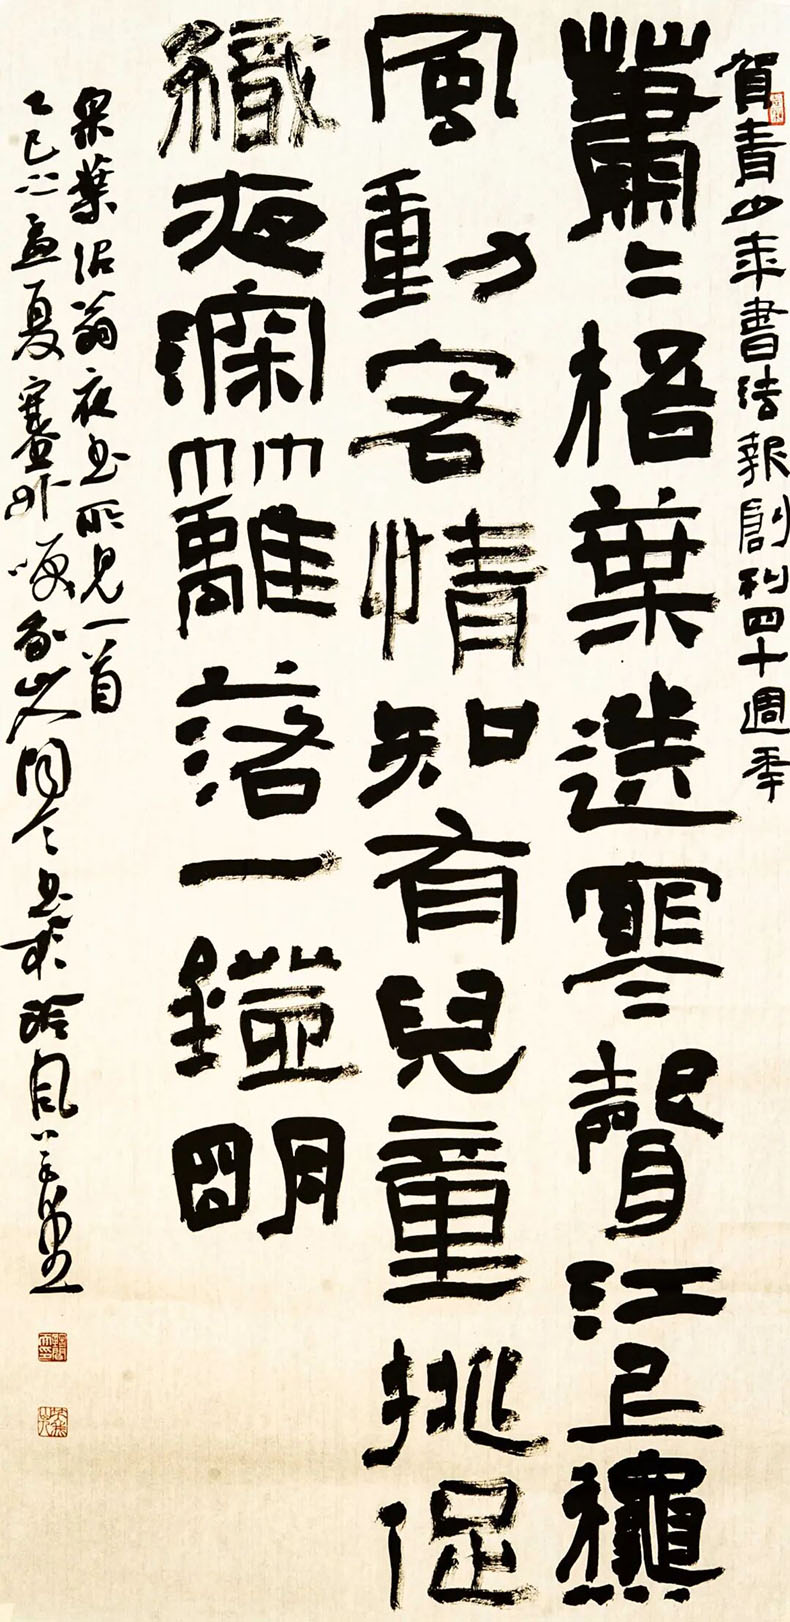 賀青少年書法報創刊四十週年
蕭〻梧葉送寒聲江上龝
風動客情知有兒童挑促
織夜深籬落一鐙明
宋葉紹翁夜書所見一首
乙巳之孟夏塞外